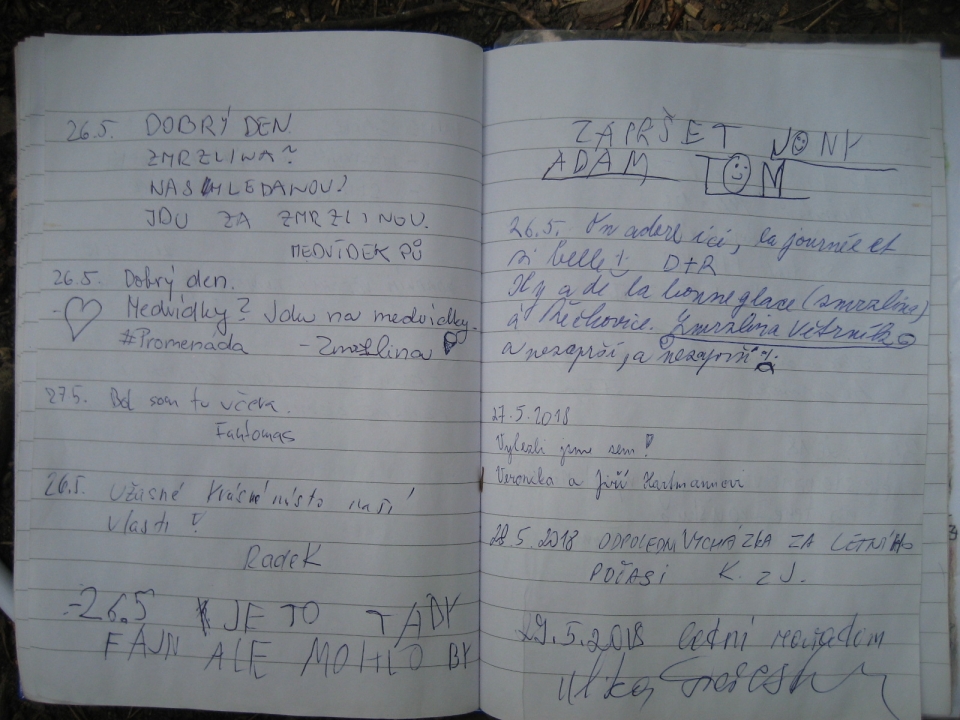 26.5. DOBRÝ DEN.
ZMRZLINA?
NASHLEDANOU?
JDU ZA ZMRZLINOU.
MEDVÍDEK PŮ
26.5. Dobrý den.
Medvídky? Jdu na medvídky.
#Promenáda - Zmrzlina
27.5. Bol som tu včera.
Fantomas
26.5. Užasné krásné místo naší
vlasti!
Radek
26.5 JE TO TADY
FAJN ALE MOHLO BY
ZAPRŠET JONY
ADAM TOM
26.5. On adore ici, la journée et
si belle! D+R
Il y a de la bonne glace (zmrzlina)
á Zmrzlina Větrník
a nezaprší, a nezaprší
27.5.2018
Vylezli jsme sem!
Veronika a Jiří Hartmannovi
28.5.2018 ODPOLEDNÍ VYCHÁZKA ZA LETNÍHO
POČASÍ K. z J.
29.5.2018 letní